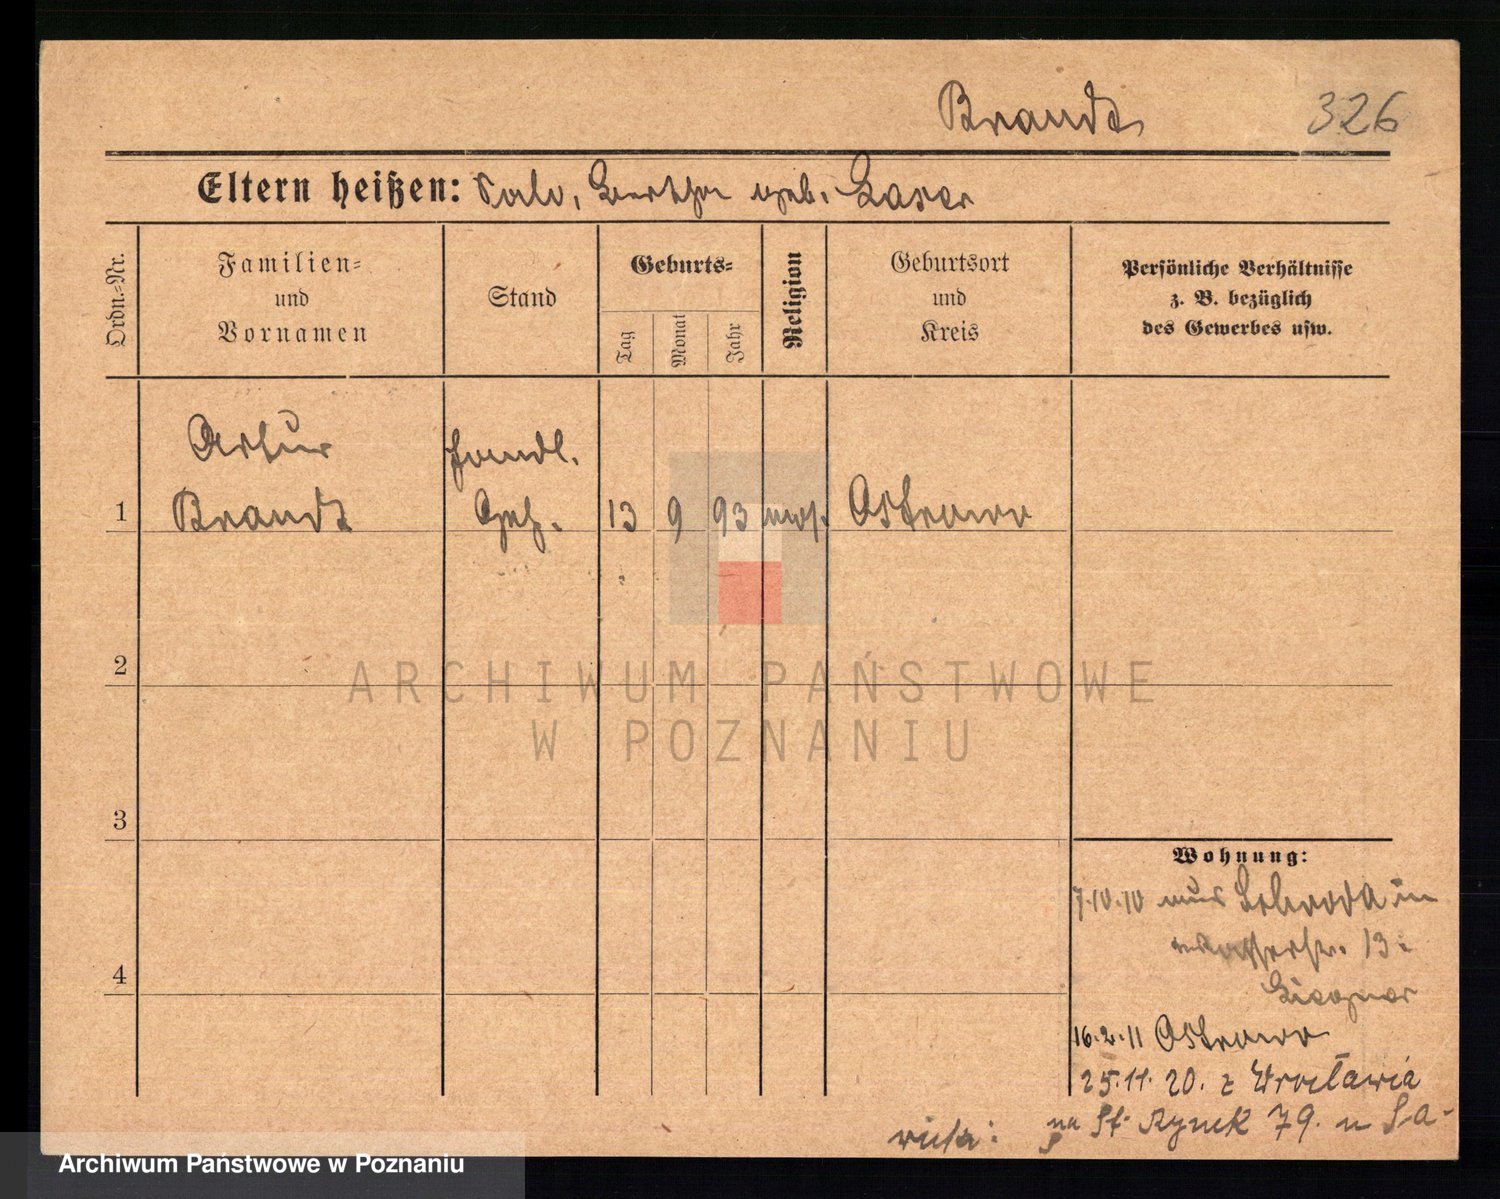 Brandt
326
Eltern heißen: Salo, Bertha geb. Laser
Ordn.=Nr.
Familien=
und
Vornamen
Stand
Geburts=
Tag
Monat
Jahr
Religion
Geburtsort
und
Kreis
Persönliche Verhältnisse
z. B. bezüglich
des Gewerbes usw.
Artur
Brandt
Handl.
Geh.
1
13 9 93 mos. Ostrowo
2
3
4
ARCHIWUM PAŃSTWOWE
W POZNANIU
Wohnung:
7.10.10 aus Schroda in
Wasserstr. 13:
16.2.11 Ostrowo
25.11.20. z Wrocławia
na St. Rynek 79. u Sa-
Archiwum Państwowe w Poznaniu